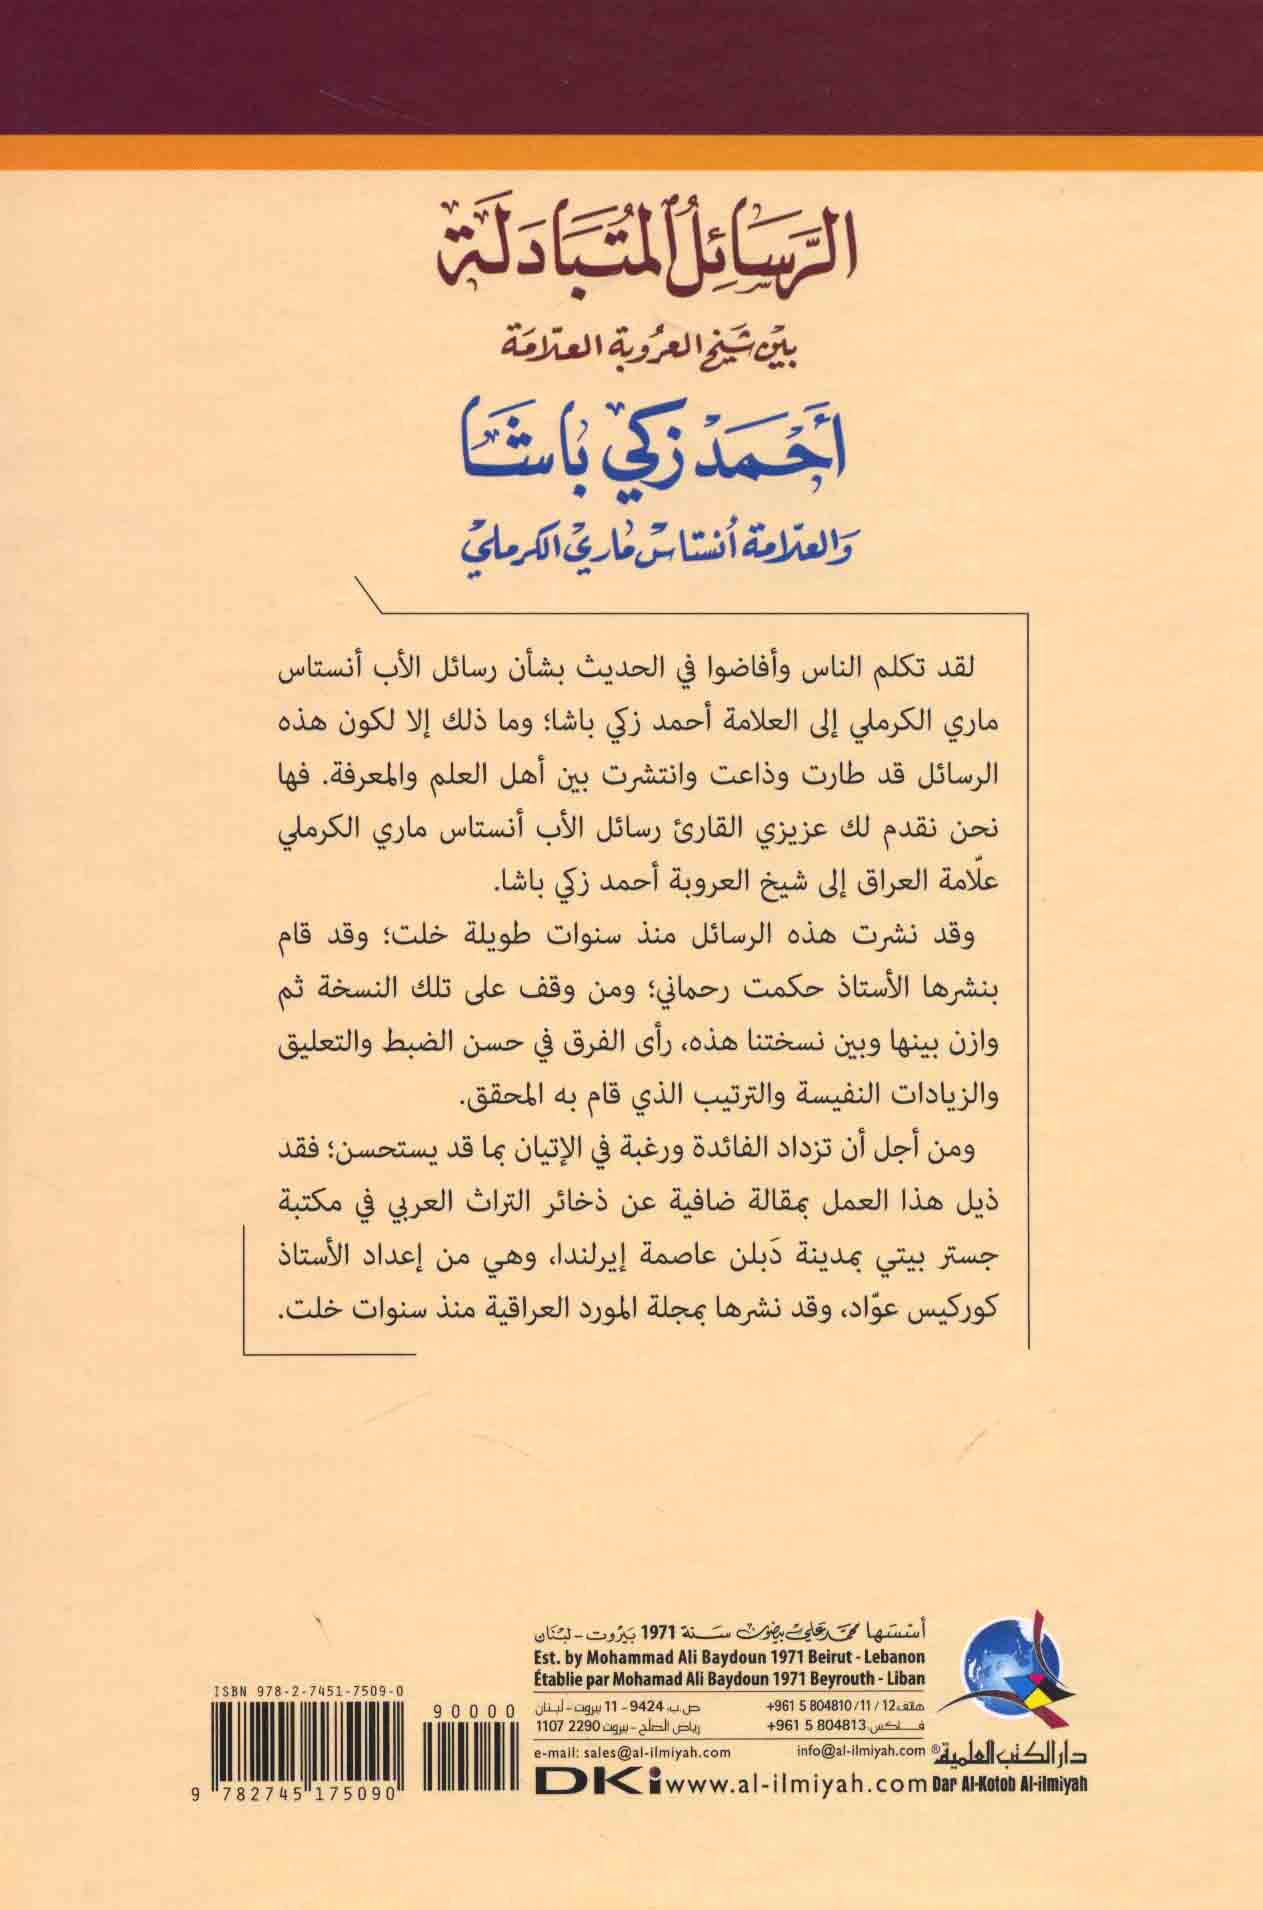 الرَّسَائِلُ المُتَبَادَلَة
بَيْن شَيْخ العُرُوبة العَلّامَة
أَحْمَد زَكي بَاشَا
وَالعَلّامَة أَنستاس مَاري الكرملي
لقد تكلم الناس وأفاضوا في الحديث بشأن رسائل الأب أنستاس
ماري الكرملي إلى العلامة أحمد زكي باشا؛ وما ذلك إلا لكون هذه
الرسائل قد طارت وذاعت وانتشرت بين أهل العلم والمعرفة. فها
نحن نقدم لك عزيزي القارئ رسائل الأب أنستاس ماري الكرملي
علّامة العراق إلى شيخ العروبة أحمد زكي باشا.
وقد نشرت هذه الرسائل منذ سنوات طويلة خلت؛ وقد قام
بنشرها الأستاذ حكمت رحماني؛ ومن وقف على تلك النسخة ثم
وازن بينها وبين نسختنا هذه، رأى الفرق في حسن الضبط والتعليق
والزيادات النفيسة والترتيب الذي قام به المحقق.
ومن أجل أن تزداد الفائدة ورغبة في الإتيان بما قد يستحسن؛ فقد
ذيل هذا العمل بمقالة ضافية عن ذخائر التراث العربي في مكتبة
جستر بيتي بمدينة دَبلن عاصمة إيرلندا، وهي من إعداد الأستاذ
كوركيس عوّاد، وقد نشرها بمجلة المورد العراقية منذ سنوات خلت.
أسّسَها محمّد علي بيضون سَنة 1971 بَيْروت - لبْنان
Est. by Mohammad Ali Baydoun 1971 Beirut - Lebanon
Établie par Mohamad Ali Baydoun 1971 Beyrouth - Liban
هاتف: 12 / 11 / 804810 5 961+ ص.ب: 9424 - 11 بيروت - لبنان
فاكس: 804813 5 961+ رياض الصلح - بيروت 2290 1107
e-mail: sales@al-ilmiyah.com info@al-ilmiyah.com
دار الكتب العلمية®
DKi www.al-ilmiyah.com Dar Al-Kotob Al-ilmiyah
ISBN 978-2-7451-7509-0
90000
9 782745 175090